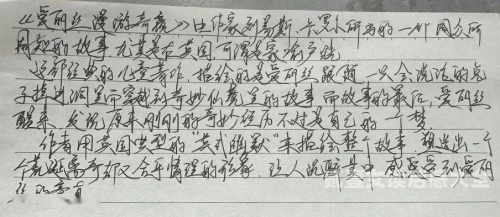 《爱丽丝漫游奇境》由作家刘易斯·卡罗尔所写的一部国外所
周知的故事，尤其是在英国可谓是家喻户晓
这部经典的儿童著作，描绘的是爱丽丝跟随一只会说话的兔
子掉进洞里而穿越到奇妙仙境里的故事而故事的最后，爱丽丝
醒来，发现原来刚刚的奇妙经历不过是自己的一个梦
作者用英国典型的"英式幽默"来描绘整个故事，塑造出一个
个荒诞离奇却又合乎情理的形象，让人沉醉其中，感受到爱丽
丝的